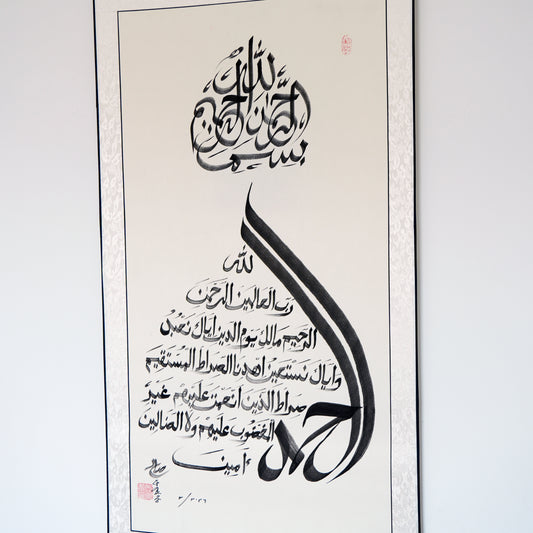 بسم الله الرحمن الرحيم
الحمد لله
رب العالمين الرحمن
الرحيم مالك يوم الدين اياك نعبد
واياك نستعين اهدنا الصراط المستقيم
صراط الذين انعمت عليهم غير
المغضوب عليهم ولا الضالين
امين